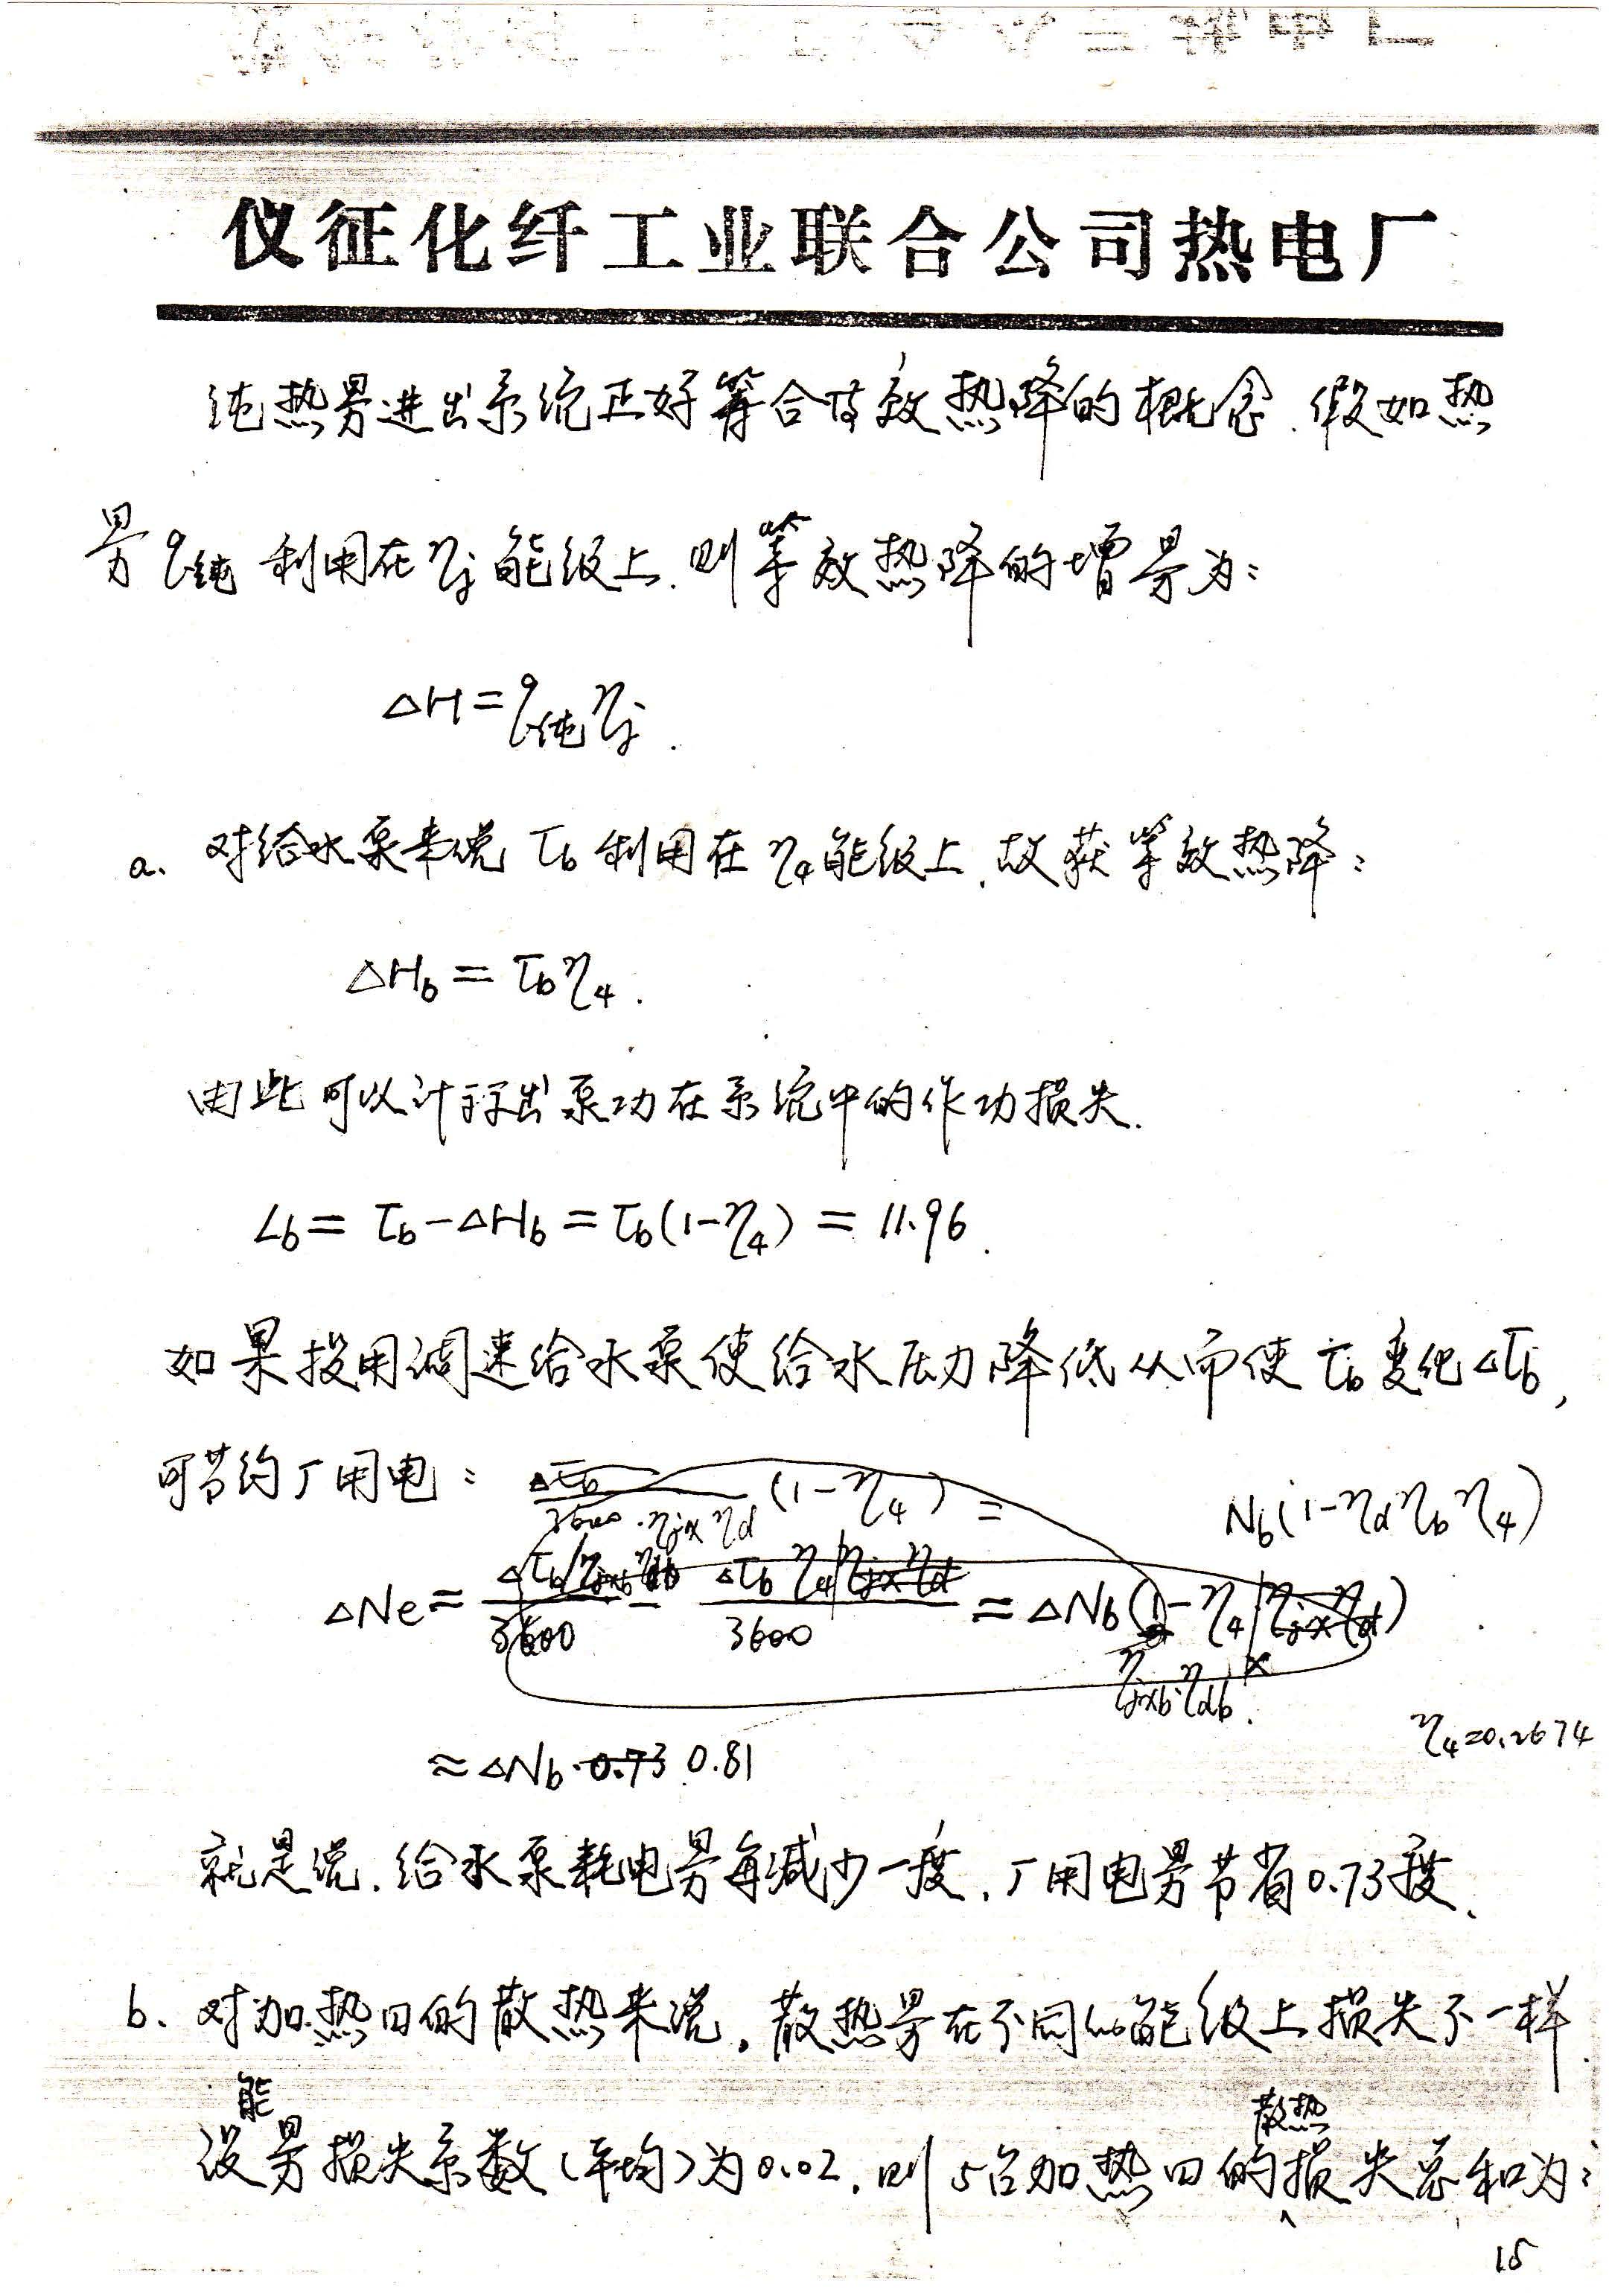 仪征化纤工业联合公司热电厂
纯热量进出系统正好符合等效热降的概念.假如热
量q纯 利用在ηj能级上.则等效热降的增量为:
△H=q纯ηj.
a. 对给水泵来说 τb 利用在 η4能级上.故获等效热降:
△Hb = τbη4.
由此可以计算出泵功在系统中的作功损失.
Lb = τb-△Hb = τb(1-η4) = 11.96.
如果投用调速给水泵使给水压力降低从而使τb变化△τb,
可节约厂用电: △τb/3600·ηjxηd (1-η4) = Nb(1-ηdηbη4)
△Ne= △τb/ηjxbηdb/3600 - △τbη4ηjxηd/3600 = △Nb(1-η4ηjxηd)
ηjxb·ηdb.
η4=0.2674
≈△Nb·0.73 0.81
就是说.给水泵耗电量每减少一度.厂用电量节省0.73度.
b. 对加热口的散热来说.散热量在不同的能级上损失不一样.
能 散热
设量损失系数(平均)为0.02.则5台加热口的损失总和为:
15